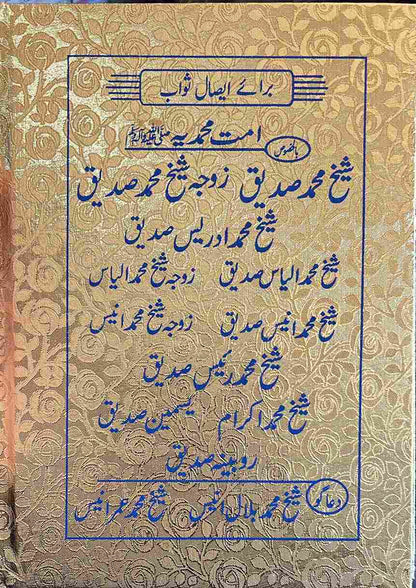 برائے ایصال ثواب
امت محمدیہ ﷺ
بالخصوص
شیخ محمد صدیق زوجہ شیخ محمد صدیق
شیخ محمد ادریس صدیق
شیخ محمد الیاس صدیق زوجہ شیخ محمد الیاس
شیخ محمد انیس صدیق زوجہ شیخ محمد انیس
شیخ محمد رئیس صدیق
شیخ محمد اکرام یسمین صدیق
روبینہ صدیق
دعا گو شیخ محمد بلال انیس شیخ محمد عمر انیس